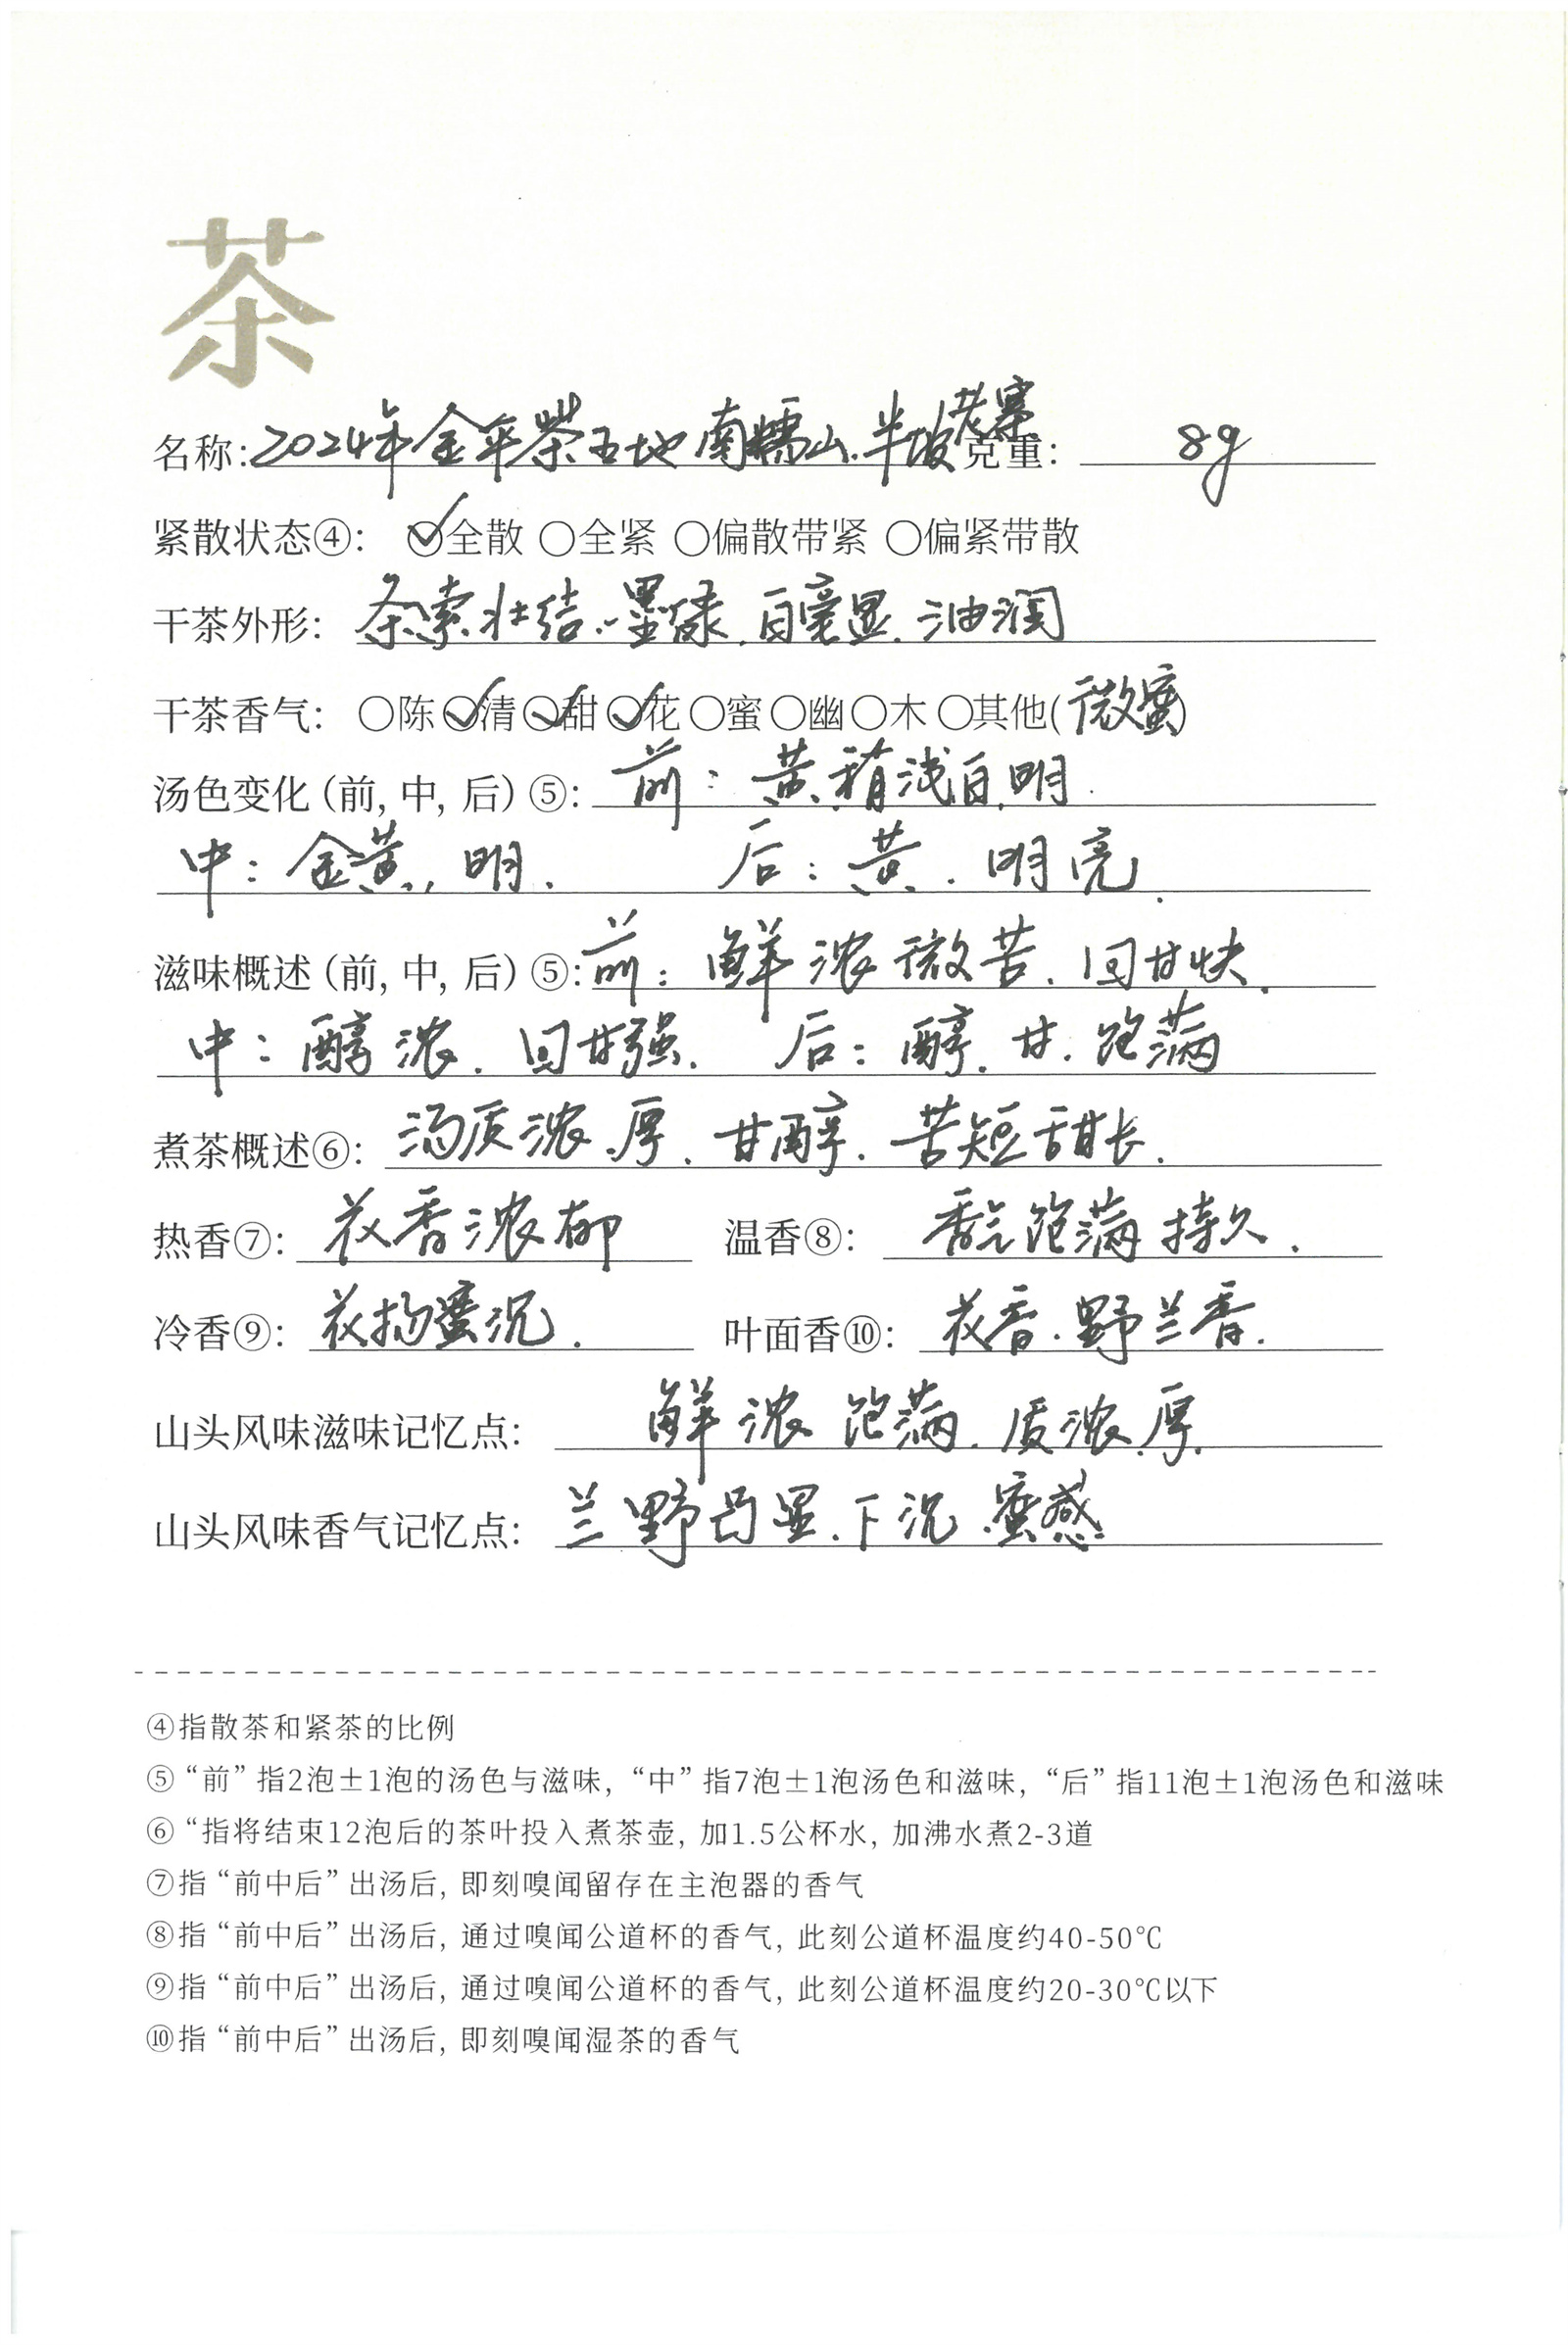 茶
名称:2024年金平茶王地南糯山.半坡老寨 克重: 8g
紧散状态④: 全散 全紧 偏散带紧 偏紧带散
干茶外形: 条索壮结.墨绿.白毫显.油润
干茶香气: 陈 清 甜 花 蜜 幽 木 其他(微蜜)
汤色变化(前,中,后)⑤: 前:黄.稍浅白.明.
中:金黄.,明. 后:黄.明亮.
滋味概述(前,中,后)⑤: 前:鲜浓微苦.回甘快.
中:醇浓.回甘强. 后:醇.甘.饱满
煮茶概述⑥: 汤质浓.厚.甘醇.苦短甜长.
热香⑦: 花香浓郁 温香⑧: 香气饱满持久.
冷香⑨: 花扬蜜沉. 叶面香⑩: 花香.野兰香.
山头风味滋味记忆点: 鲜浓饱满.质浓.厚.
山头风味香气记忆点: 兰野凸显.下沉.蜜感
④指散茶和紧茶的比例
⑤“前”指2泡±1泡的汤色与滋味,“中”指7泡±1泡汤色和滋味,“后”指11泡±1泡汤色和滋味
⑥“指将结束12泡后的茶叶投入煮茶壶,加1.5公杯水,加沸水煮2-3道
⑦指“前中后”出汤后,即刻嗅闻留存在主泡器的香气
⑧指“前中后”出汤后,通过嗅闻公道杯的香气,此刻公道杯温度约40-50℃
⑨指“前中后”出汤后,通过嗅闻公道杯的香气,此刻公道杯温度约20-30℃以下
⑩指“前中后”出汤后,即刻嗅闻湿茶的香气